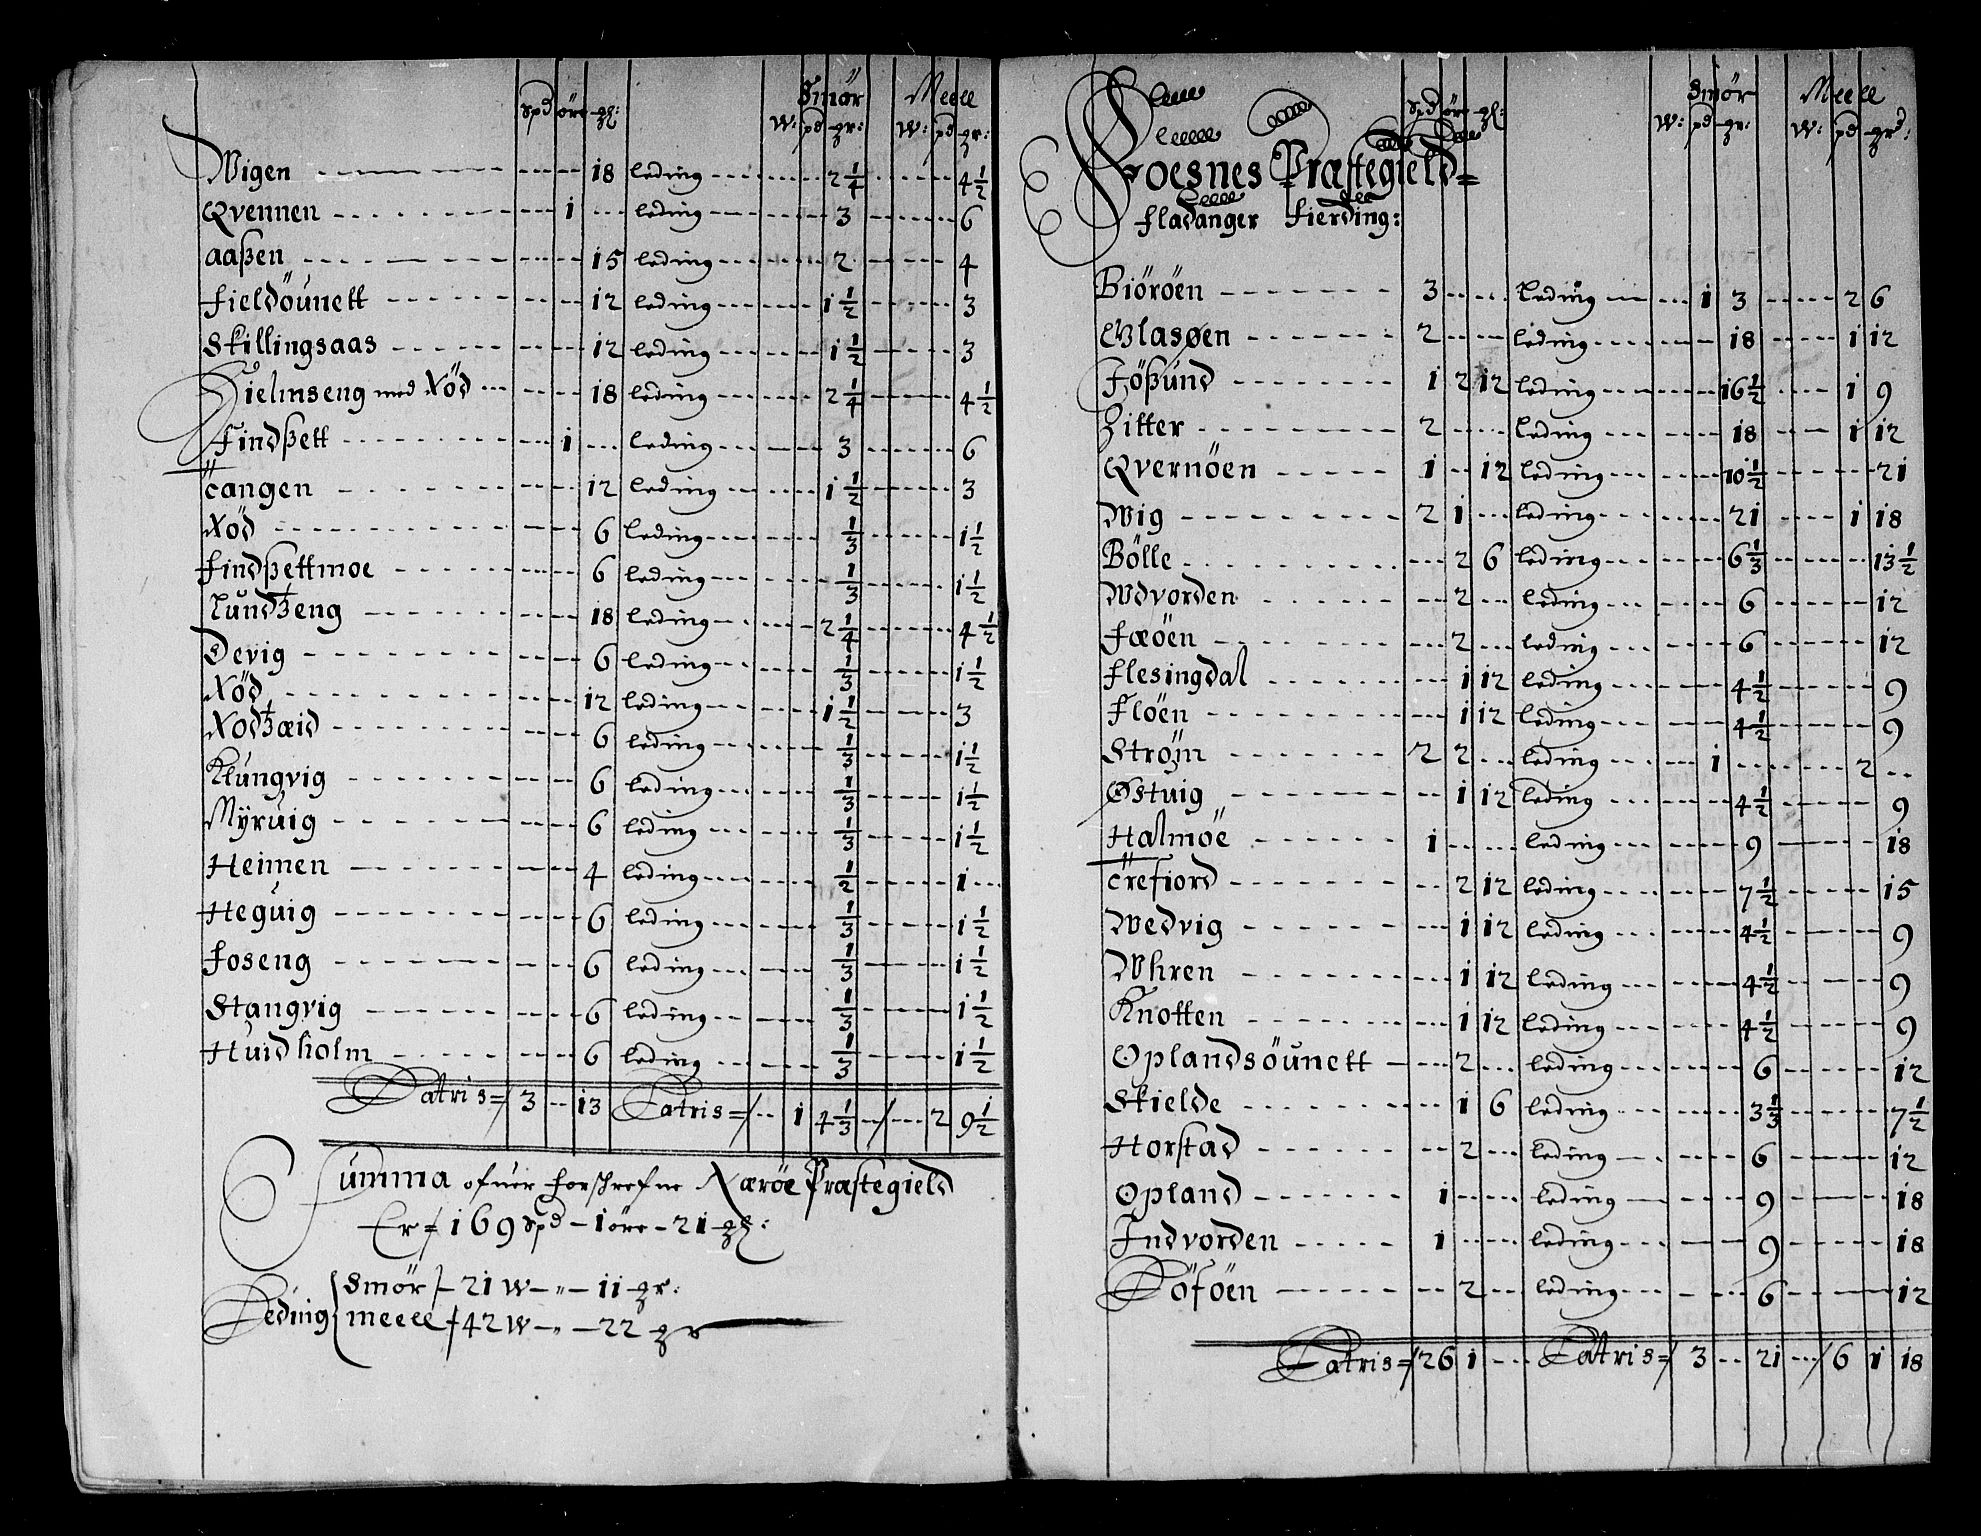 Smör Meell
Spd öre gl: W: pd gr: W: pd gr:
Wigen 18 leding 2 1/4 4 1/2
Qvennen 1 leding 3 6
aaßen 15 leding 2 4
Fieldöunett 12 leding 1 1/2 3
Skillingsaas 12 leding 1 1/2 3
Hielmseng med Nöd 18 leding 2 1/4 4 1/2
Findßett 1 leding 3 6
Tangen 12 leding 1 1/2 3
Nöd 6 leding 1/3 1 1/2
Findßettmoe 6 leding 1/3 1 1/2
Lundtzeng 18 leding 2 1/4 4 1/2
Devig 6 leding 1/3 1 1/2
Nöd 12 leding 1 1/2 3
Nodtzæid 6 leding 1/3 1 1/2
Klungvig 6 leding 1/3 1 1/2
Myruig 6 leding 1/3 1 1/2
Heimen 4 leding 1/2 1
Heguig 6 leding 1/3 1 1/2
Foseng 6 leding 1/3 1 1/2
Stangvig 6 leding 1/3 1 1/2
Huidholm 6 leding 1/3 1 1/2
Latris 3 13 Latris 1 4 1/3 2 9 1/2
Summa ofuer forschrefne Næröe Præstegield
Er 169 Spd 1 öre 21 gl:
Smör 21 W 11 gr:
Leding
meell 42 W 22 gr
Smör Meell
Spd öre gl: W: pd gr: W: pd grd:
Foesnes Præstegield
Fladanger Fierding:
Biöröen 3 leding 1 3 2 6
Glasøen 2 leding 18 1 12
Jößund 1 2 12 leding 16 1/2 1 9
Zitter 2 leding 18 1 12
Qvernöen 1 12 leding 10 1/2 21
Wig 2 1 leding 21 1 18
Bölle 2 6 leding 6 1/3 13 1/2
Wdvorden 2 leding 6 12
Fæöen 2 leding 6 12
Flesingdal 1 12 leding 4 1/2 9
Flöen 1 12 leding 4 1/2 9
Ström 2 2 leding 1 2
Østuig 1 12 leding 4 1/2 9
Halmöe 1 leding 9 18
Trefiord 2 12 leding 7 1/2 15
Wedvig 1 12 leding 4 1/2 9
Whren 1 12 leding 4 1/2 9
Knotten 1 12 leding 4 1/2 9
Oplandsöunett 2 leding 6 12
Skielde 1 6 leding 3 1/3 7 1/2
Horstad 2 leding 6 12
Opland 1 leding 9 18
Indvorden 1 leding 9 18
Löföen 2 leding 6 12
Latris 26 1 Latris 3 21 6 1 18